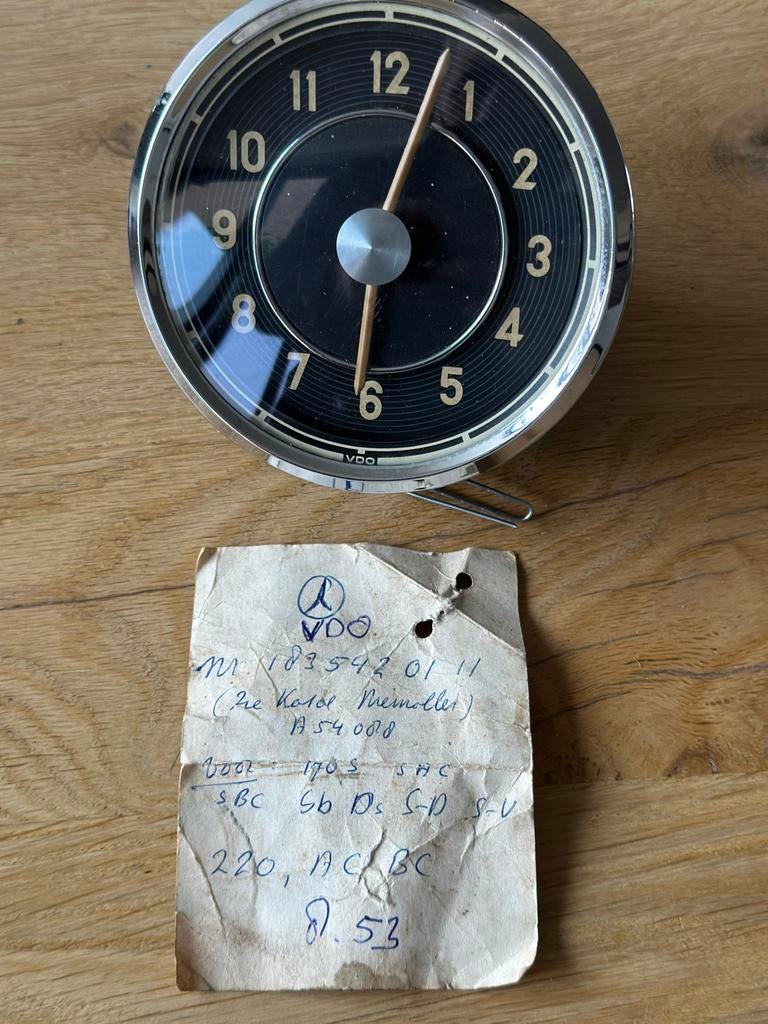 12
1
2
3
4
5
6
7
8
9
10
11
VDO
VDO
M 183 542 01 11
A 54 088
Voor: 170 S SAC
SBC Sb Ds S-D S-V
220, AC BC
53